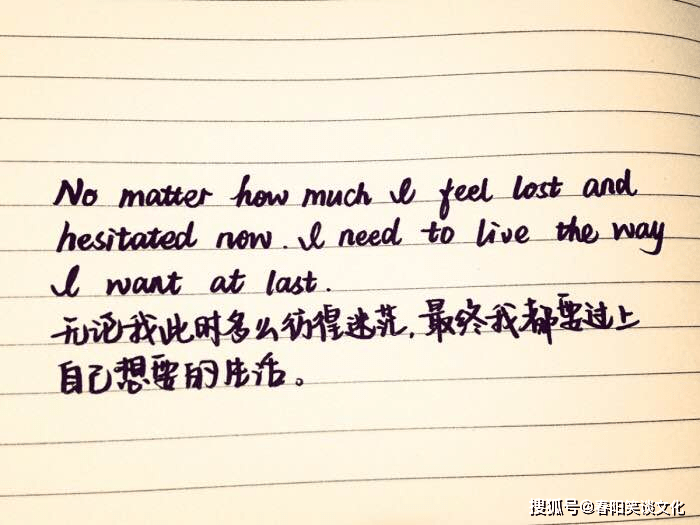 No matter how much I feel lost and
hesitated now. I need to live the way
I want at last.
无论我此时多么彷徨迷茫,最终我都要过上
自己想要的生活。
搜狐号@春阳笑谈文化